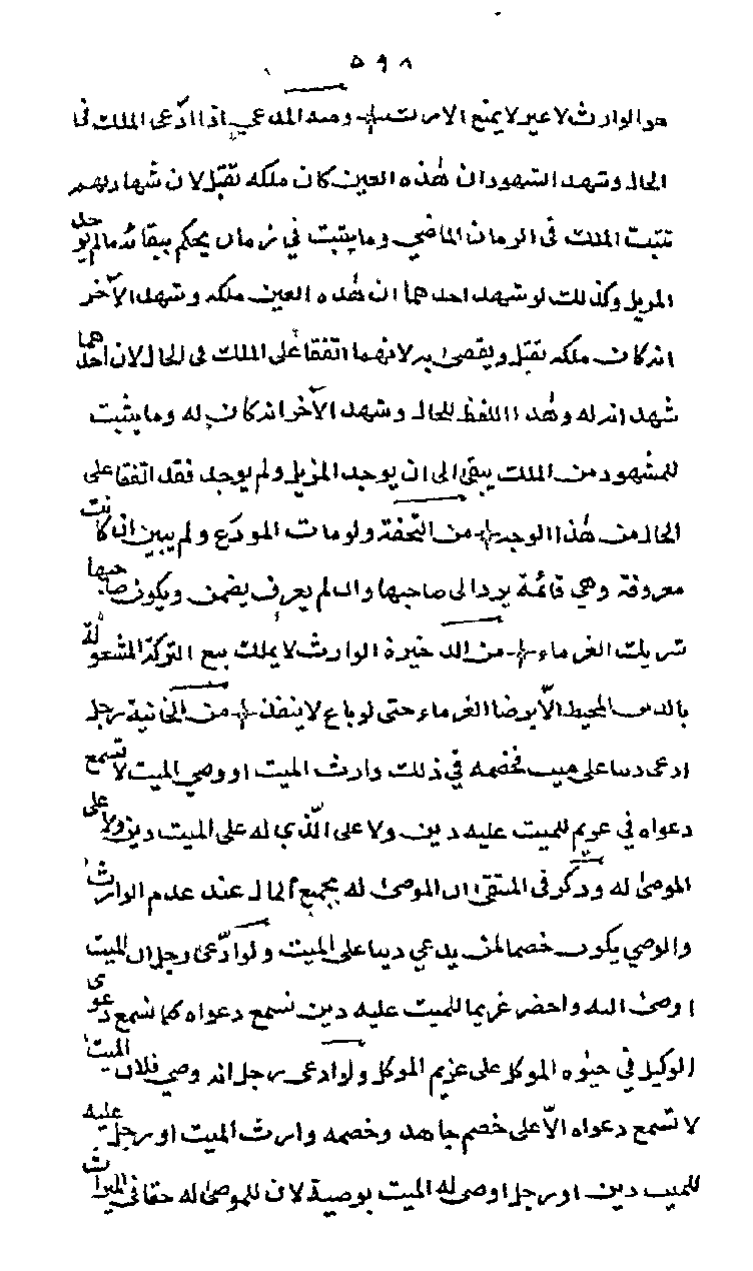 ٥٩٨
هو الوارث لا غير لا يمنع الارث وفيه المدعي اذا ادّعى الملك فى
الحال وشهد الشهود ان هٰذه العين كان ملكه تقبل لان شهادتهم
تثبت الملك فى الزمان الماضي وما يثبت في زمان يحكم ببقائه مالم يوجد
المزيل وكذلك لو شهد احدهما ان هٰذه العين ملكه وشهد الآخر
انه كان ملكه تقبل ويقضى به لانهما اتفقا على الملك فى الحال لان احدهما
شهد انه له وهٰذا اللفظ للحال وشهد الآخر انه كان له وما يثبت
للمشهود من الملك يبقى الى ان يوجد المزيل ولم يوجد فقد اتفقا على
الحال من هٰذا الوجه من التحفة ولو مات المودَع ولم يبين ان كانت
معروفة وهي قائمة يرد الى صاحبها وان لم يعرف يضمن ويكون صاحبها
شريك الغرماء من الذخيرة الوارث لا يملك بيع التركة المشغولة
بالدين المحيط الّا برضا الغرماء حتى لو باع لا ينفذ من الخانية رجل
ادعى دينا على ميت فخصمه في ذلك وارث الميت او وصي الميت لا تسمع
دعواه في غريم للميت عليه دين ولا على الّذي له على الميت دين ولا على
الموصىٰ له وذكر فى المنتقى ان الموصىٰ له بجميع المال عند عدم الوارث
والوصي يكون خصما لمن يدعي دينا على الميت ولو ادّعى رجل ان الميت
اوصىٰ اليه واحضر غريما للميت عليه دين تسمع دعواه كما تسمع دعوى
الوكيل في حيٰوة الموكل على غريم الموكل ولو ادعى رجل انه وصي فلان الميت
لا تسمع دعواه الّا على خصم جاحد وخصمه وارث الميت او رجل عليه
للميت دين او رجل اوصى له الميت بوصية لان للموصىٰ له حقا فى الميراث